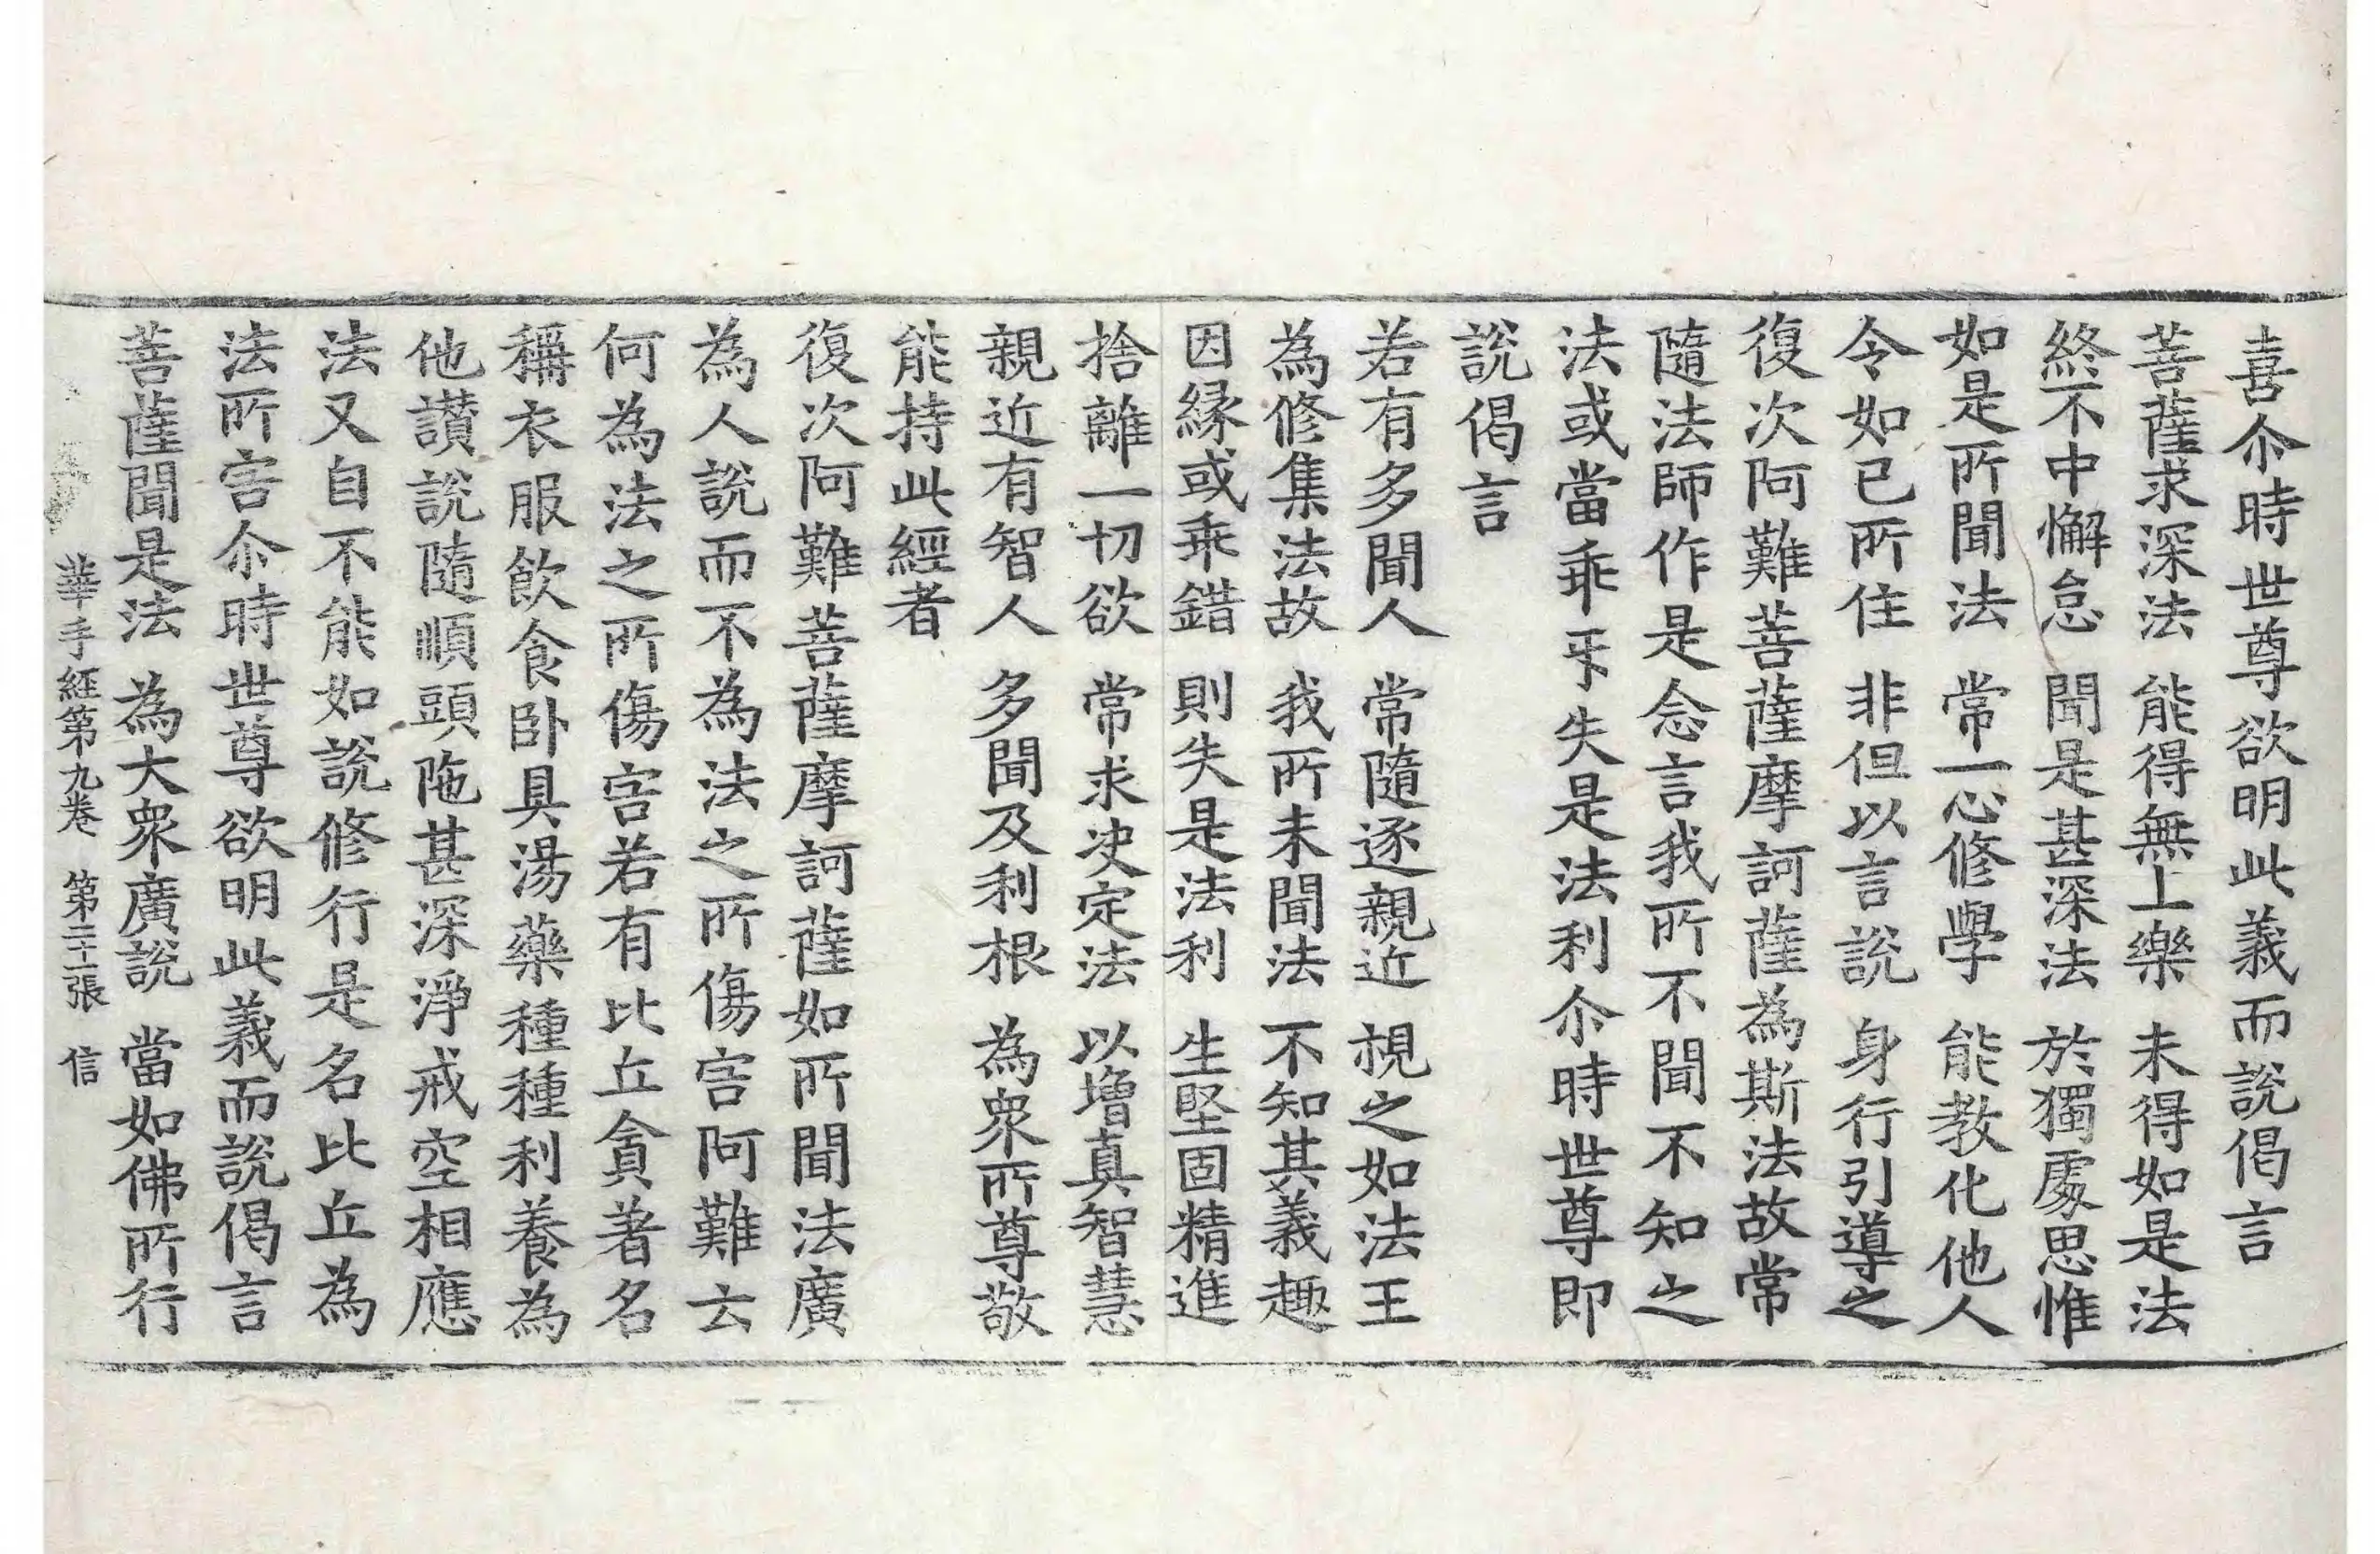 喜尒時世尊欲明此義而說偈言
菩薩求深法　能得無上樂　未得如是法
終不中懈怠　聞是甚深法　於獨處思惟
如是所聞法　常一心修學　能教化他人
令如已所住　非但以言說　身行引導之
復次阿難菩薩摩訶薩為斯法故常
隨法師作是念言我所不聞不知之
法或當乖㸦失是法利尒時世尊即
說偈言
若有多聞人　常隨逐親近　視之如法王
為修集法故　我所未聞法　不知其義趣
因縁或乖錯　則失是法利　生堅固精進
捨離一切欲　常求决定法　以增真智慧
親近有智人　多聞及利根　為衆所尊敬
能持此經者
復次阿難菩薩摩訶薩如所聞法廣
為人說而不為法之所傷害阿難云
何為法之所傷害若有比丘貪著名
稱衣服飲食卧具湯藥種種利養為
他讃說隨順頭陁甚深淨戒空相應
法又自不能如說修行是名比丘為
法所害尒時世尊欲明此義而說偈言
菩薩聞是法　為大衆廣說　當如佛所行
華手經第九卷　第二十一張　信